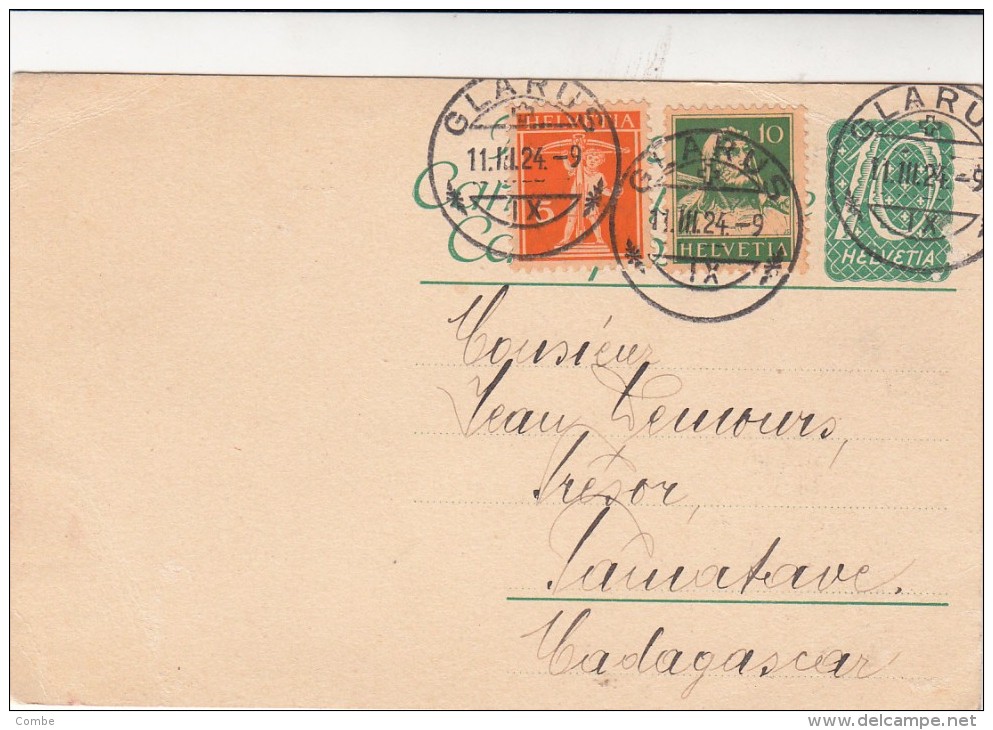 GLARUS
11.III.24.-9
IX
HELVETIA
5
GLARUS
11.III.24.-9
IX
10
HELVETIA
GLARUS
11.III.24.-9
IX
10
HELVETIA
Monsieur
Jean Demours,
Trésor,
Tamatave.
Madagascar
Combe
www.delcampe.net